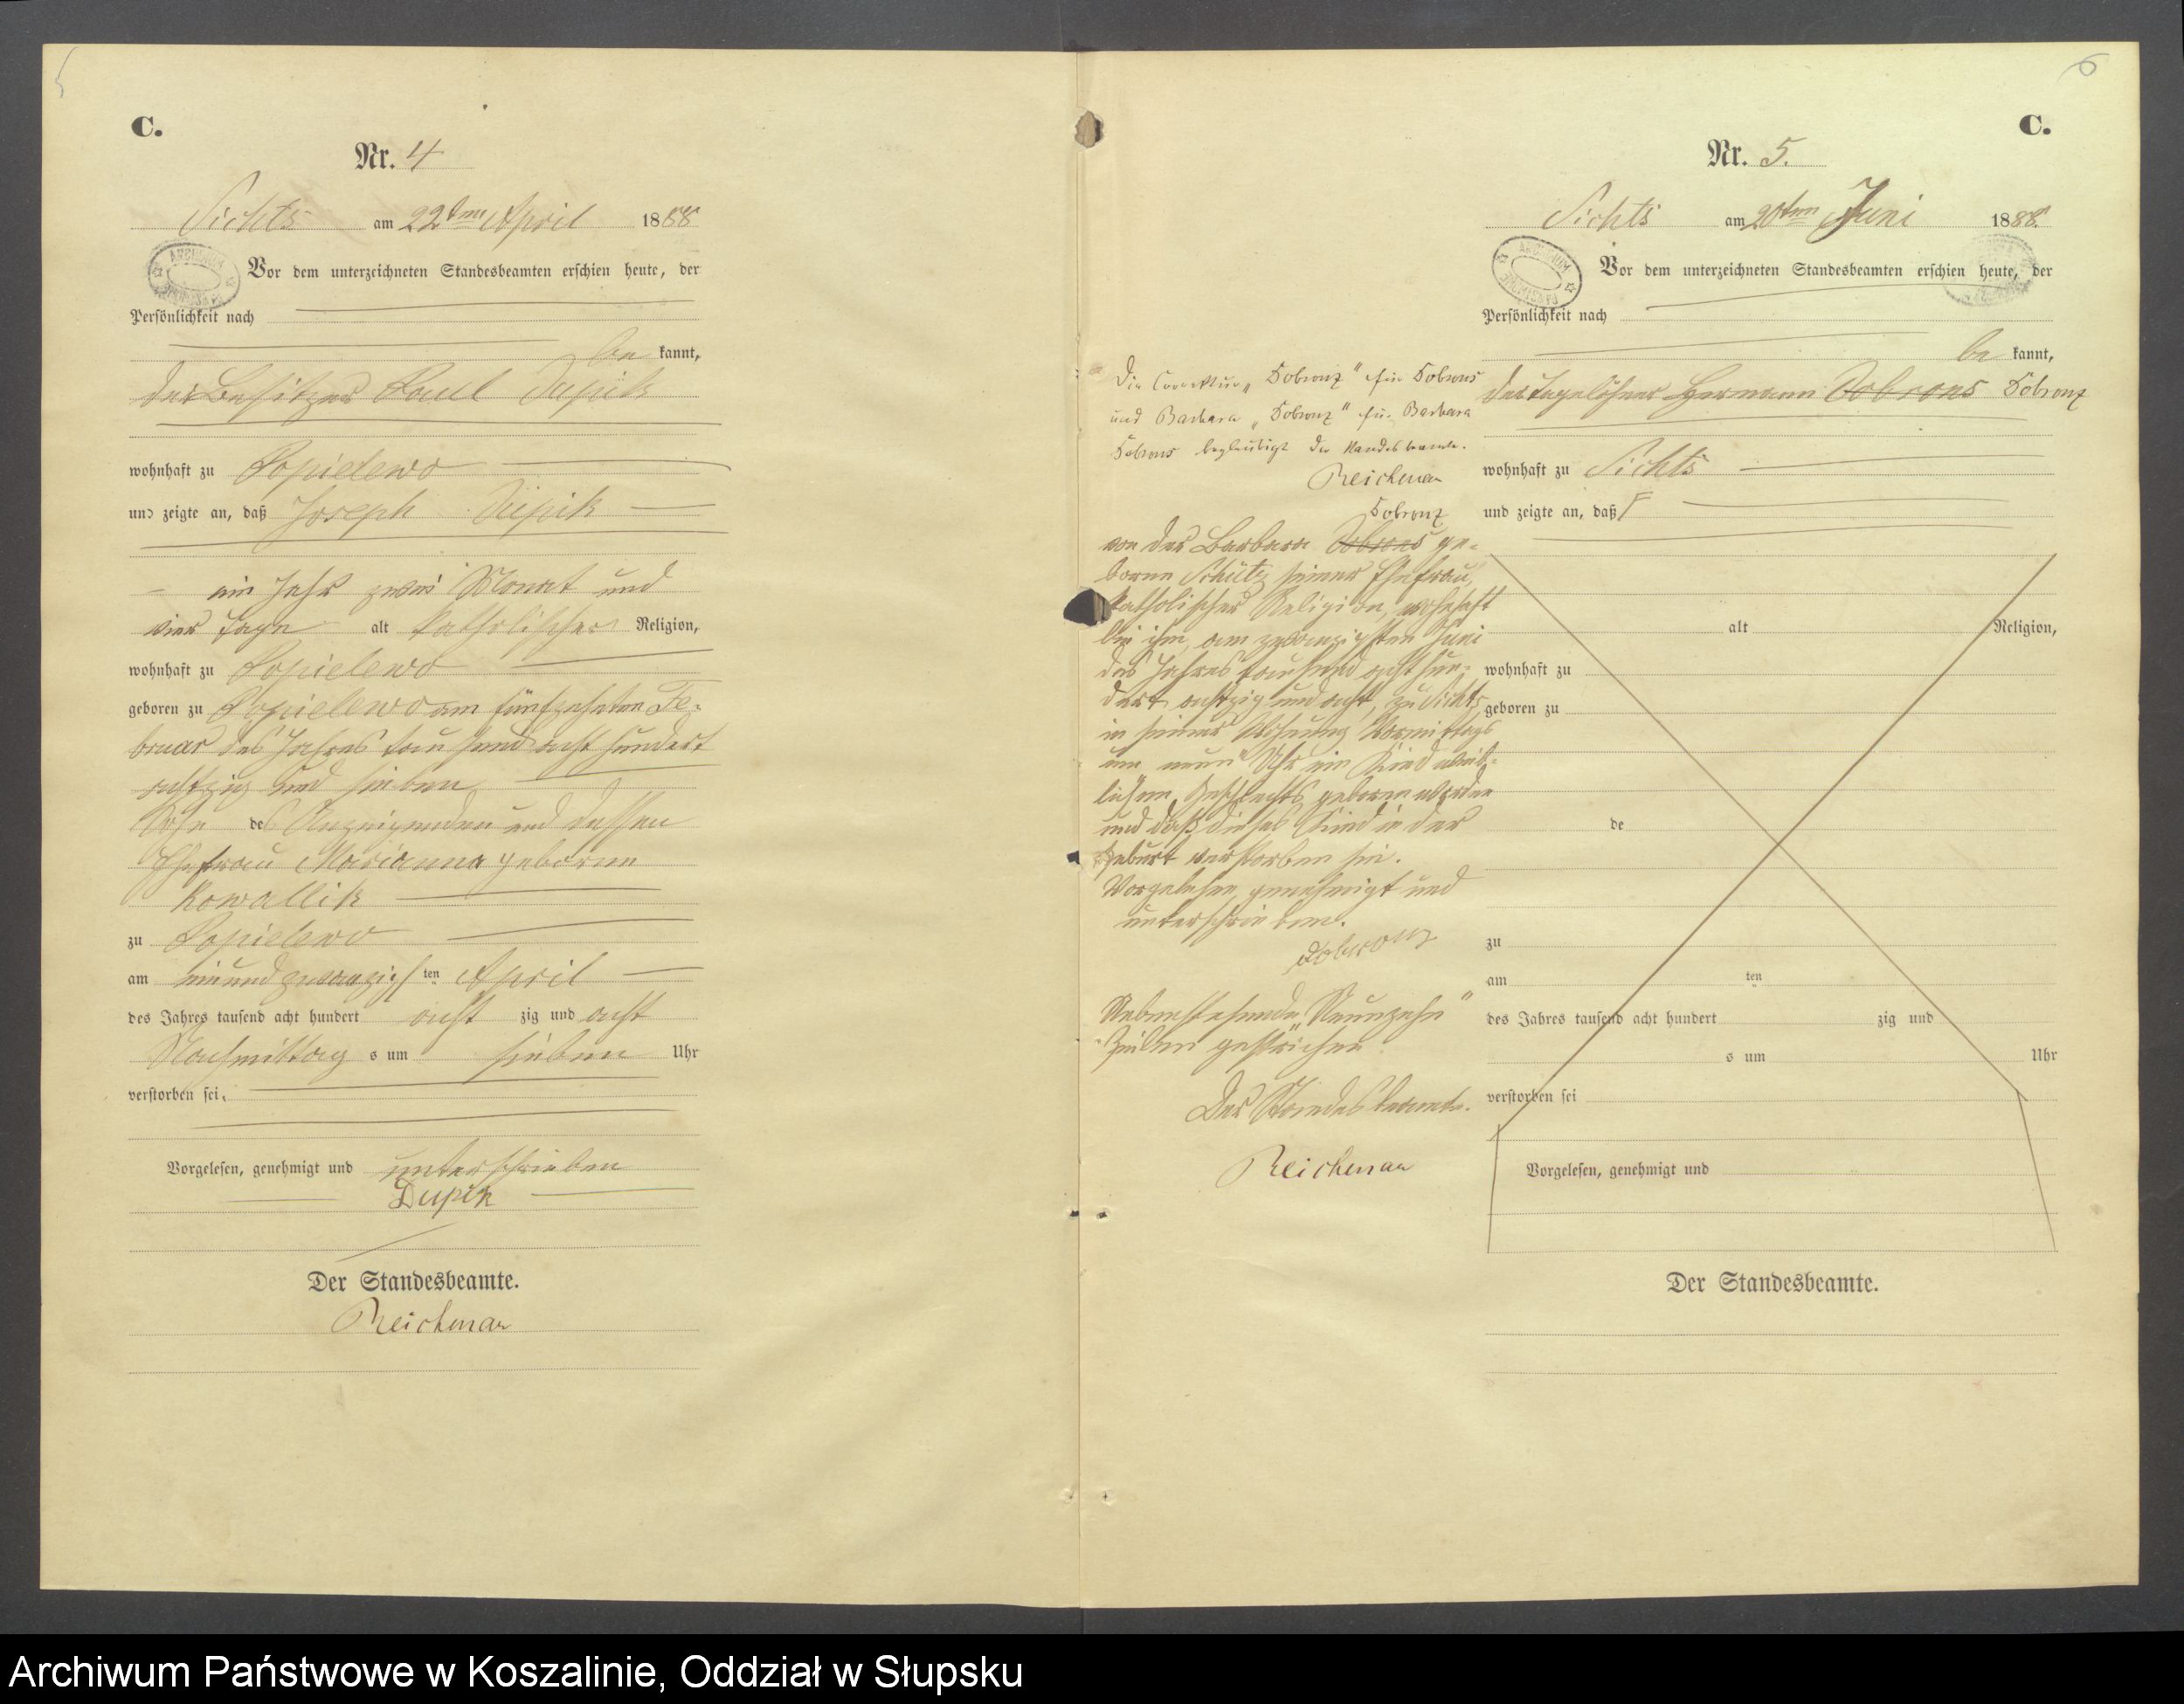 5
C.
Nr. 4
Sichts am 22ten April 1888
Vor dem unterzeichneten Standesbeamten erschien heute, der
Persönlichkeit nach
be kannt,
der Besitzer Paul Dupik
wohnhaft zu Popielewo
und zeigte an, daß Joseph Dupik
ein Jahr zwei Monat und
vier Tage alt katholischer Religion,
wohnhaft zu Popielewo
geboren zu Popielewo am fünfzehnten Fe-
bruar des Jahres tausend acht hundert
achtzig und sieben
Sohn des Anzeigenden und dessen
Ehefrau Marianna geborene
Kowallik
zu Popielewo
am einundzwanzigsten April
des Jahres tausend acht hundert acht zig und acht
Nachmittags um sieben Uhr
verstorben sei.
Vorgelesen, genehmigt und unterschrieben
Dupik
Der Standesbeamte.
Reichenau
6
C.
Nr. 5.
Sichts am 20ten Juni 1888.
Vor dem unterzeichneten Standesbeamten erschien heute, der
Persönlichkeit nach
be kannt,
der Tagelöhner Hermann Dobrons Dobronz
wohnhaft zu Sichts
und zeigte an, daß
Die Correktur „Dobronz" für Dobrons
und Barbara „Dobronz" für Barbara
Dobrons beglaubigt der Standesbeamte.
Reichenau
Dobronz
von der Barbara Dobrons ge-
borne Schütz seiner Ehefrau,
katholischer Religion, wohnhaft
bei ihm, am zwanzigsten Juni
des Jahres tausend acht hun-
dert achtzig und acht, zu Sichts
in seiner Wohnung Vormittags
um neun Uhr ein Kind weib-
lichen Geschlechts geboren worden
und daß dieses Kind in der
Geburt verstorben sei.
Vorgelesen, genehmigt und
unterschrieben.
Dobronz
Nebenstehende „Neunzehn"
Zeilen gestrichen.
Der Standesbeamte.
Reichenau
alt Religion,
wohnhaft zu
geboren zu
de
zu
am ten
des Jahres tausend acht hundert zig und
s um Uhr
verstorben sei
Vorgelesen, genehmigt und
Der Standesbeamte.
Archiwum Państwowe w Koszalinie, Oddział w Słupsku